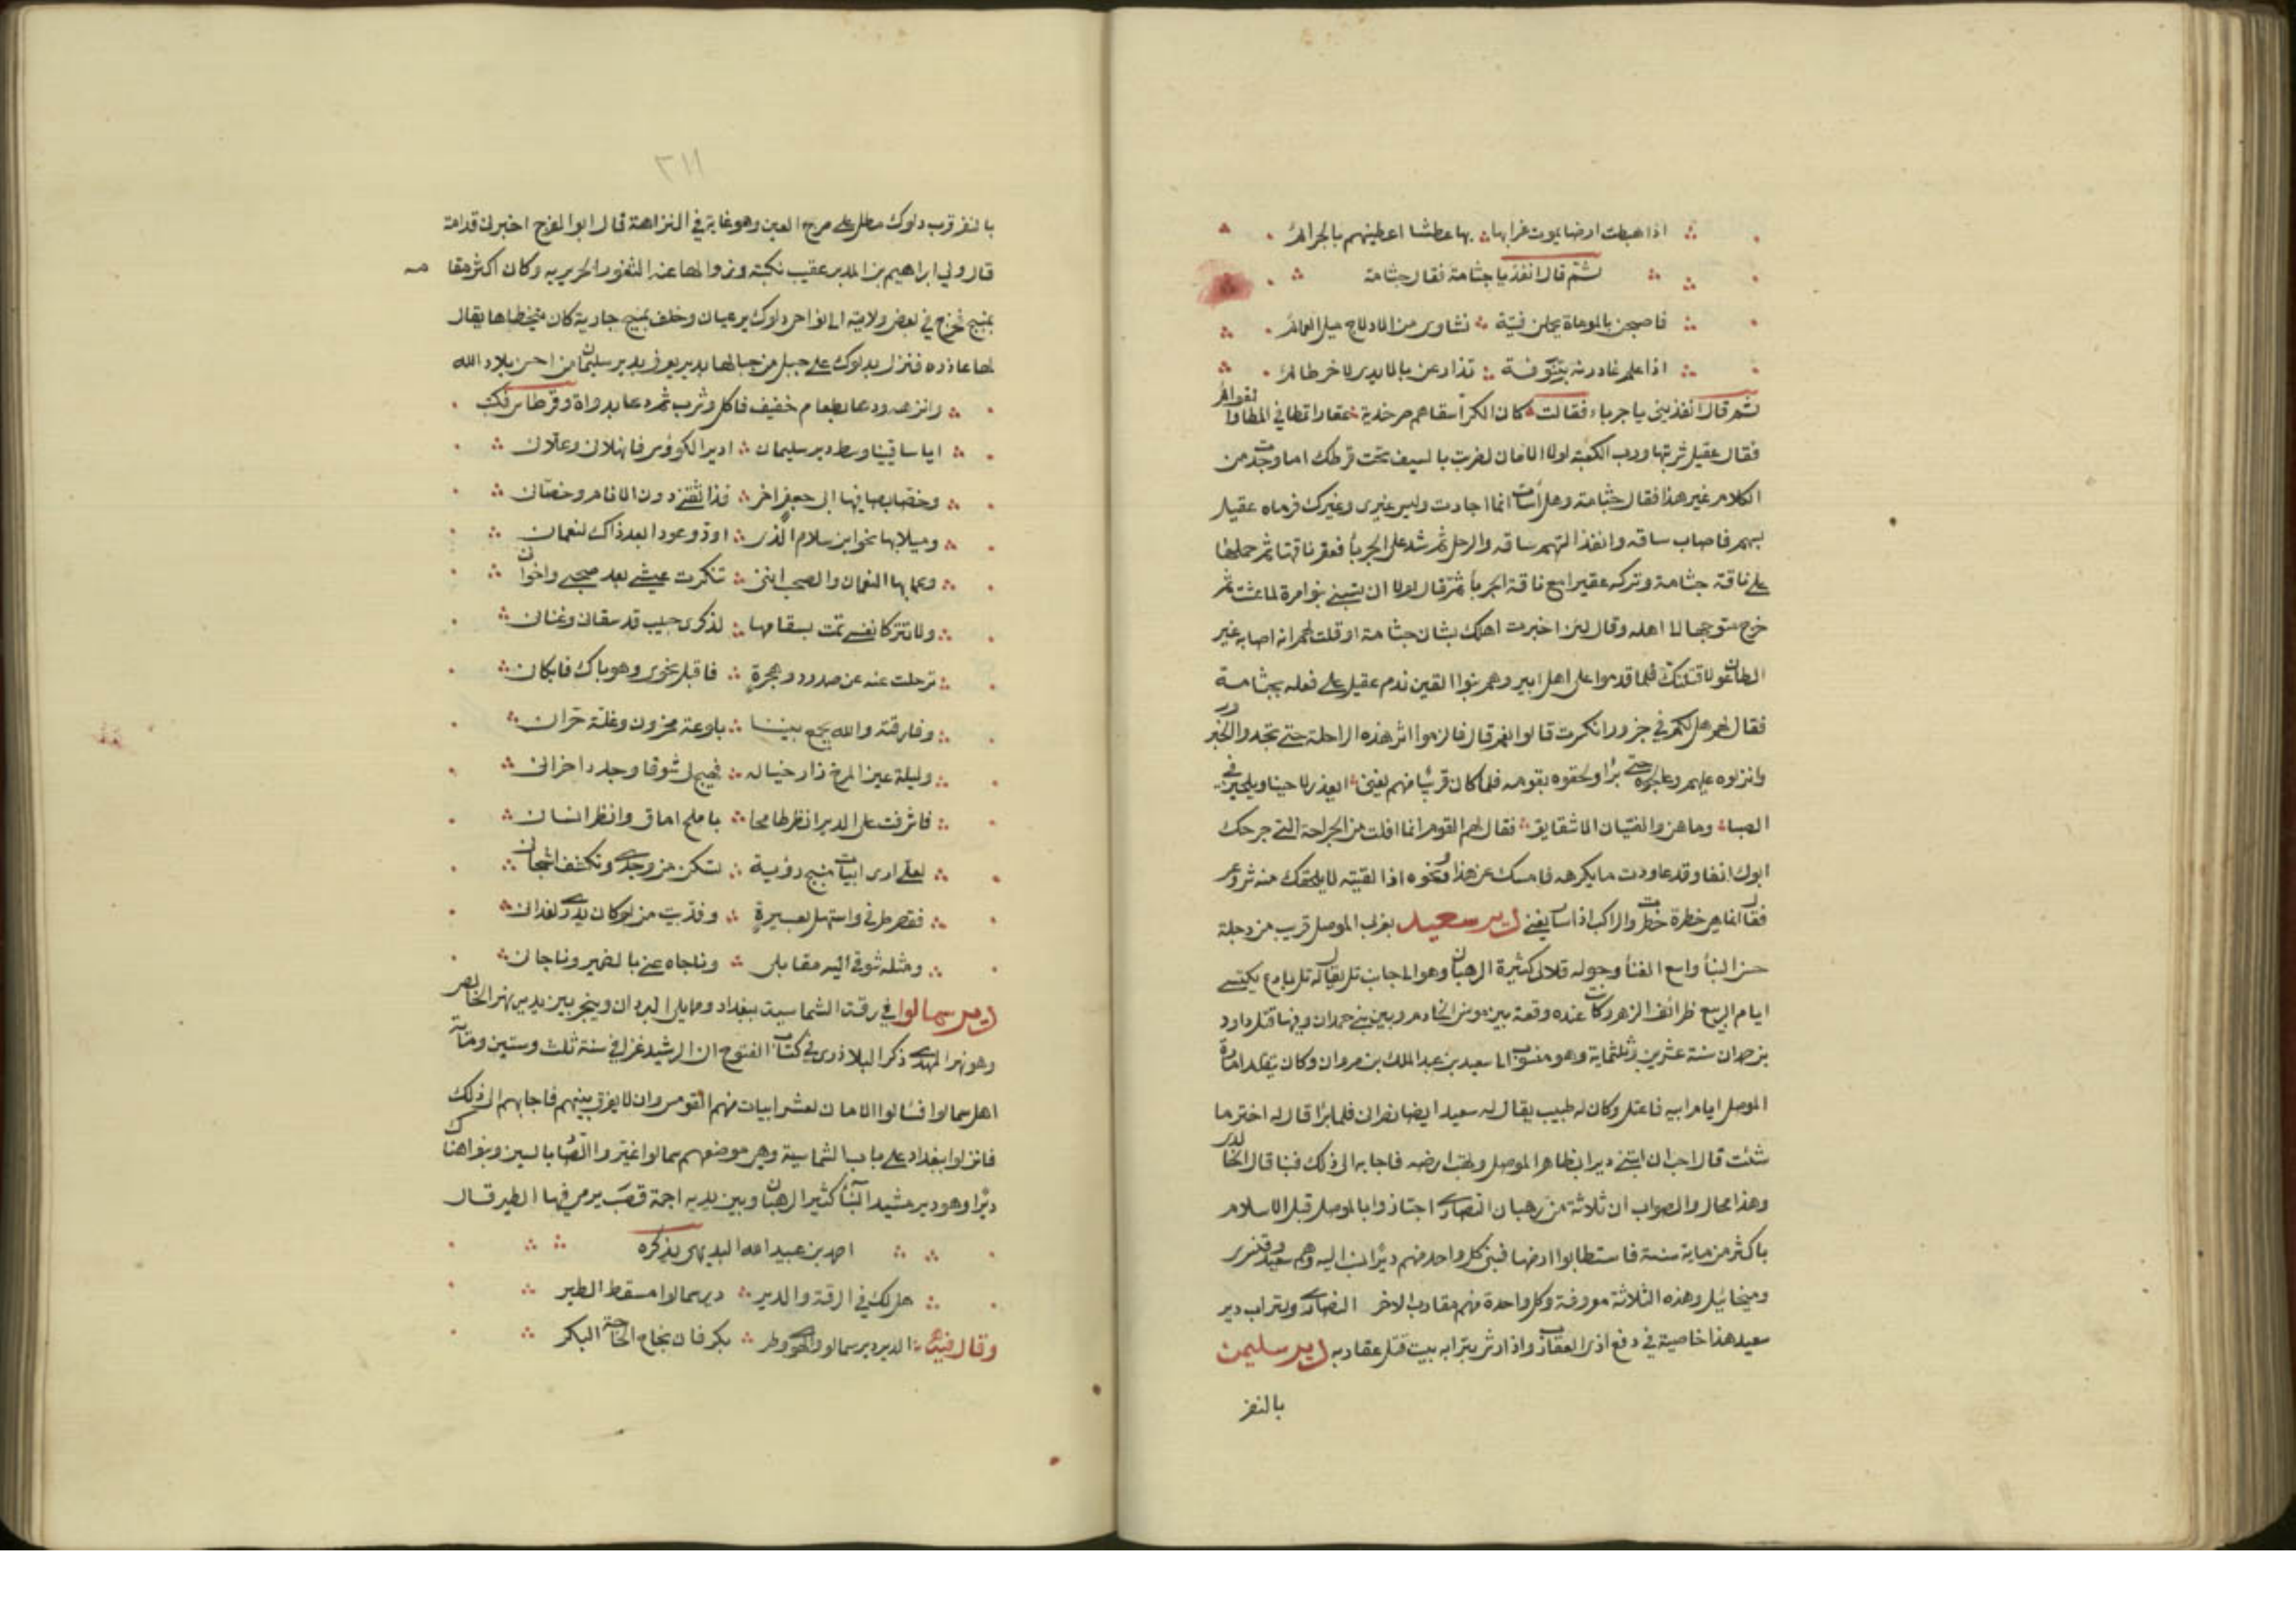 اذا هبطت ارضا يموت غرابها ∴ بها عطشا اعطينهم بالجرائر
ثم قال انفذ يا جثامة فقال جثامة
فاصبحن بالموماة يحملن فتية ∴ نشاوى من الادلاج ميل العمائم
اذا علم غادرنه بتنوفة ∴ تذارعن بالايدى لاخر طاسم
ثم قال انفذيني يا جرباء فقالت كان الكرا سقاهم صرخدية عقارا تمطا في المطا والقوائم
فقال عقيل شربتها ورب الكعبة لولا الامان لضربت بالسيف تحت قرطك اما وجدت من
الكلام غير هذا فقال جثامة وهل اسأت انما اجادت وليس غيرى وغيرك فرماه عقيل
بسهم فاصاب ساقه وانفذ السهم ساقه والرحل ثم شد على الجربا فعقر ناقتها ثم حملها
على ناقة جثامة وتركه عقيرا مع ناقة الجربا ثم قال لولا ان تسبني بنوا مرة لما عشت ثم
خرج متوجها الى اهله وقال لئن اخبرت اهلك بشان جثامة او قلت لهم انه اصابه غير
الطاعون لاقتلنك فلما قدموا على اهل ابير وهم بنوا القين ندم عقيل على فعله بجثامة
فقال لهم هل لكم في جزور انكسرت قالوا نعم قال فالزموا اثر هذه الراحلة حتى تجدوا الجزور
وانزلوه عليهم وعالجوه حتى برا والحقوه بقومه فلما كان قريبا منهم تغنى ايعذر لاحينا ويلحين في
الصبا وما هن والفتيان الا شقايق فقال لهم القوم انما افلت من الجراحة التي جرحك
ابوك انفا وقد عاودت ما يكرهه فامسك عن هذا ونحوه اذا لقيته لا يلحقك منه شر وعر
فقال انما هي خطرة خطرت والراكب اذا سار يغني دير سعيد بغربى الموصل قريب من دجلة
حسن البنا واسع الفنا وحوله قلالى كثيرة الرهبان وهو الى جانب تل يقال له تل بادع يكتسى
ايام الربيع ظرائف الزهر وكانت عنده وقعة بين مونس الخادم وبين بني حمدان وفيها قتل داود
بن حمدان سنة عشرين وثلثماية وهو منسوب الى سعيد بن عبد الملك بن مروان وكان يتقلد امارة
الموصل ايام ابيه فاعتل وكان له طبيب يقال له سعيد ايضا نصرانى فلما برا قال له اختر ما
شئت قال احب ان ابتني ديرا بظاهر الموصل وتهب لى ارضه فاجابه الى ذلك فبنا قال الخالدى
وهذا محال والصواب ان ثلاثة من رهبان النصارى اجتازوا بالموصل قبل الاسلام
باكثر من ماية سنة فاستطابوا ارضها فبنى كل واحد منهم ديرا نسب اليه وهم سعيد وقنسرى
وميخائيل وهذه الثلاثة معروفة وكل واحدة منهم مقارب الاخر النصارى ولتراب دير
سعيد هذا خاصية في دفع اذى العقارب واذا رش بترابه بيت قتل عقاربه دير سليمن
بالثغر
٣١١
بالثغر قرب دلوك مطل على مرج العين وهو غاية في النزاهة قال ابوا الفرج اخبرنى قدامة
قال ولي ابراهيم بن المدبر عقيب نكبته وزوالها عنه الثغور الجزريه وكان اكثر مقامه
بمنبج فخرج في بعض ولايته الى نواحى دلوك برعبان وخلف بمنبج جارية كان يتحظاها يقال
لها عادره فنزل بدلوك على جبل من جبالها بدير يعرف بدير سليمان من احسن بلاد الله
وانزهه ودعا بطعام خفيف فاكل وشرب ثم دعا بدواة وقرطاس فكتب
ايا ساقيينا وسط دير سليمان ∴ اديرا الكووس فانهلانى وعلانى
وخصا بصافيها ابى جعفر اخى ∴ فذا ثقتى دون الانام وخصانى
وميلا بها نحو ابن سلام الذى ∴ اود وعودا بعد ذاك لنعمان
وعما بها النعمان والصحب اننى ∴ تنكرت عيشى بعد صحبى واخوانى
ولا تتركا نفسى تمت بسقامها ∴ لذكرى حبيب قد سقانى وغنانى
ترحلت عنه عن صدود وهجرة ∴ فاقبل نحوى وهو باك فابكانى
وفارقته والله يجمع بيننا ∴ بلوعة محزون وغلة حران
وليلة عين المرج زار خياله ∴ فهيج لى شوقا وجدد احزانى
فاشرفت على الدير انظر طامحا ∴ بالمح اماق وانظر انسان
لعلى ارى ابيات منبج رؤية ∴ تسكن من وجدى وتكشف اشجانى
فقصر طرفى واستهل بعبرة ∴ وفديت من لو كان يدرى لفدانى
ومثله شوقى اليه مقابلى ∴ وناجاه عنى بالضمير وناجانى
دير سمالوا في رقة الشماسية ببغداد ومايلى البردان وينجر بين يديه نهر الخالص
وهو نهر المهدى ذكر البلاذرى في كتاب الفتوح ان الرشيد غزا في سنة ثلث وستين وماية
اهل سمالوا فسالوا الامان لعشر ابيات منهم القومس وان لا يفرق بينهم فاجابهم الى ذلك
فانزلوا بغداد على باب الشماسية وهى موضعهم سمالوا غيّر والصاد بالسين وبنوا هناك
ديرا وهو دير مشيد البنا كثير الرهبان وبين يديه اجمة قصب يرمى فيها الطير قال
احمد بن عبيد الله البديهى يذكره
هل لك في الرقة والدير ∴ دير سمالوا مسقط الطير
وقال فيه ∴ الدير دير سمالو للهوى وطر ∴ بكر فان نجاح الحاجة البكر